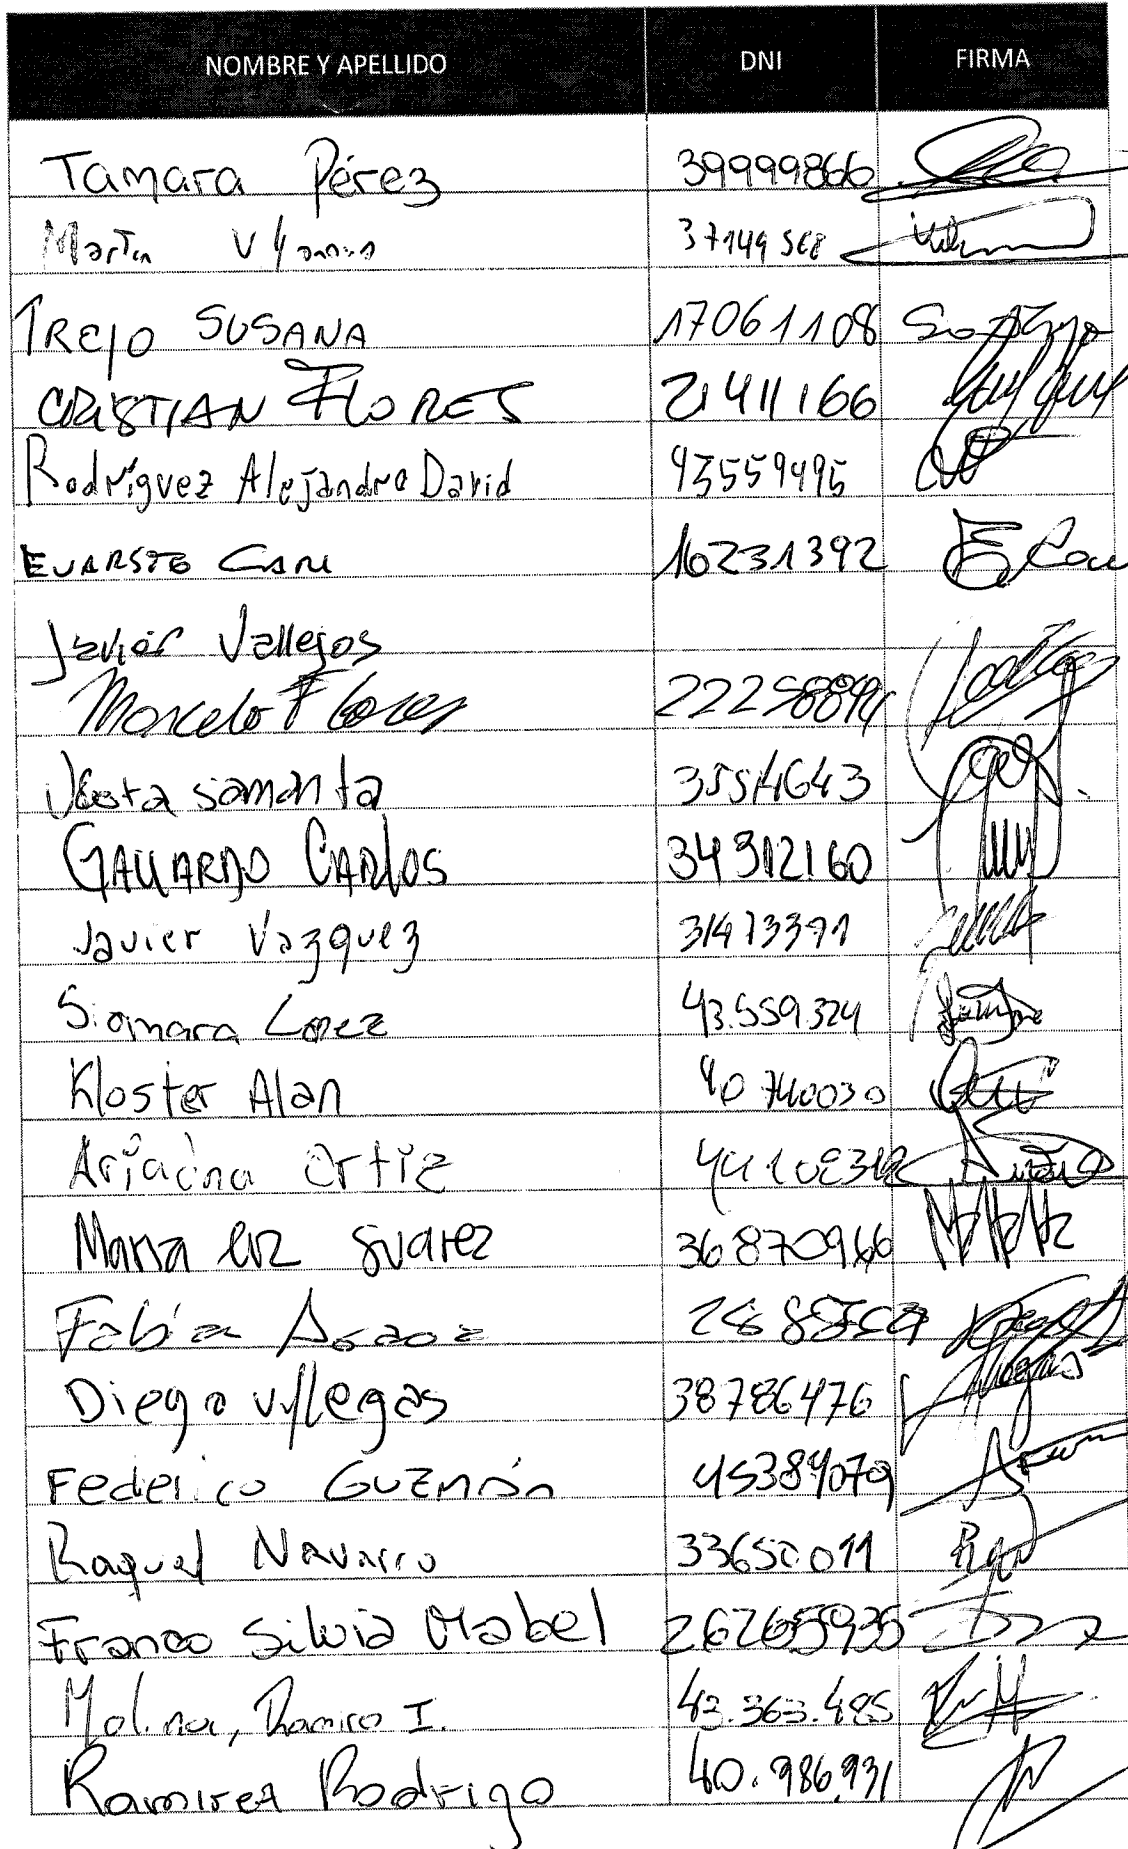 NOMBRE Y APELLIDO DNI FIRMA
Tamara Pérez 39999866
Martin
TREJO SUSANA 17061108
CRISTIAN FLORES 21411166
Rodríguez Alejandro David 43559495
EVARSTO CARI 16231392
Javier Vallejos
Marcelo Flores
Acosta Samanta
GALLARDO CARLOS 34312160
Javier Vazquez 31473371
Siomara Lopez 43.559.324
Kloster Alan 40740030
Ariadna Ortiz
Maria luz Suarez 36870966
Fabian
Diego Villegas 38786476
Federico GUZMÁN 45384079
Raquel Navarro 33650011
Franco Silvia Mabel 26265935
Molina, Ramiro I. 43.363.485
Ramirez Rodrigo 40.986.931